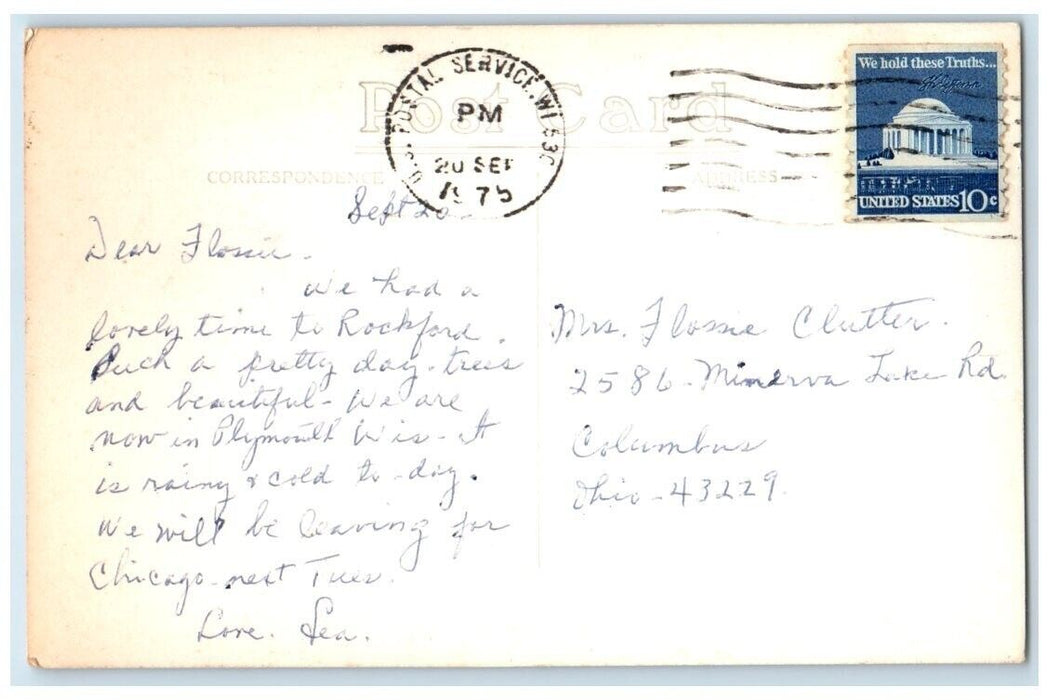 Post Card
U.S. POSTAL SERVICE, WI 530
PM
20 SEP
1975
We hold these Truths...
UNITED STATES 10c
CORRESPONDENCE
ADDRESS
Sept 20
Dear Flossie.
We had a
lovely time to Rockford.
Such a pretty day. trees
and beautiful - We are
now in Plymouth Wis - It
is rainy & cold to-day.
We will be leaving for
Chicago - next Tues.
Love. Lea.
Mrs. Flossie Clutter.
2586 - Minerva Lake Rd.
Columbus
Ohio - 43229.